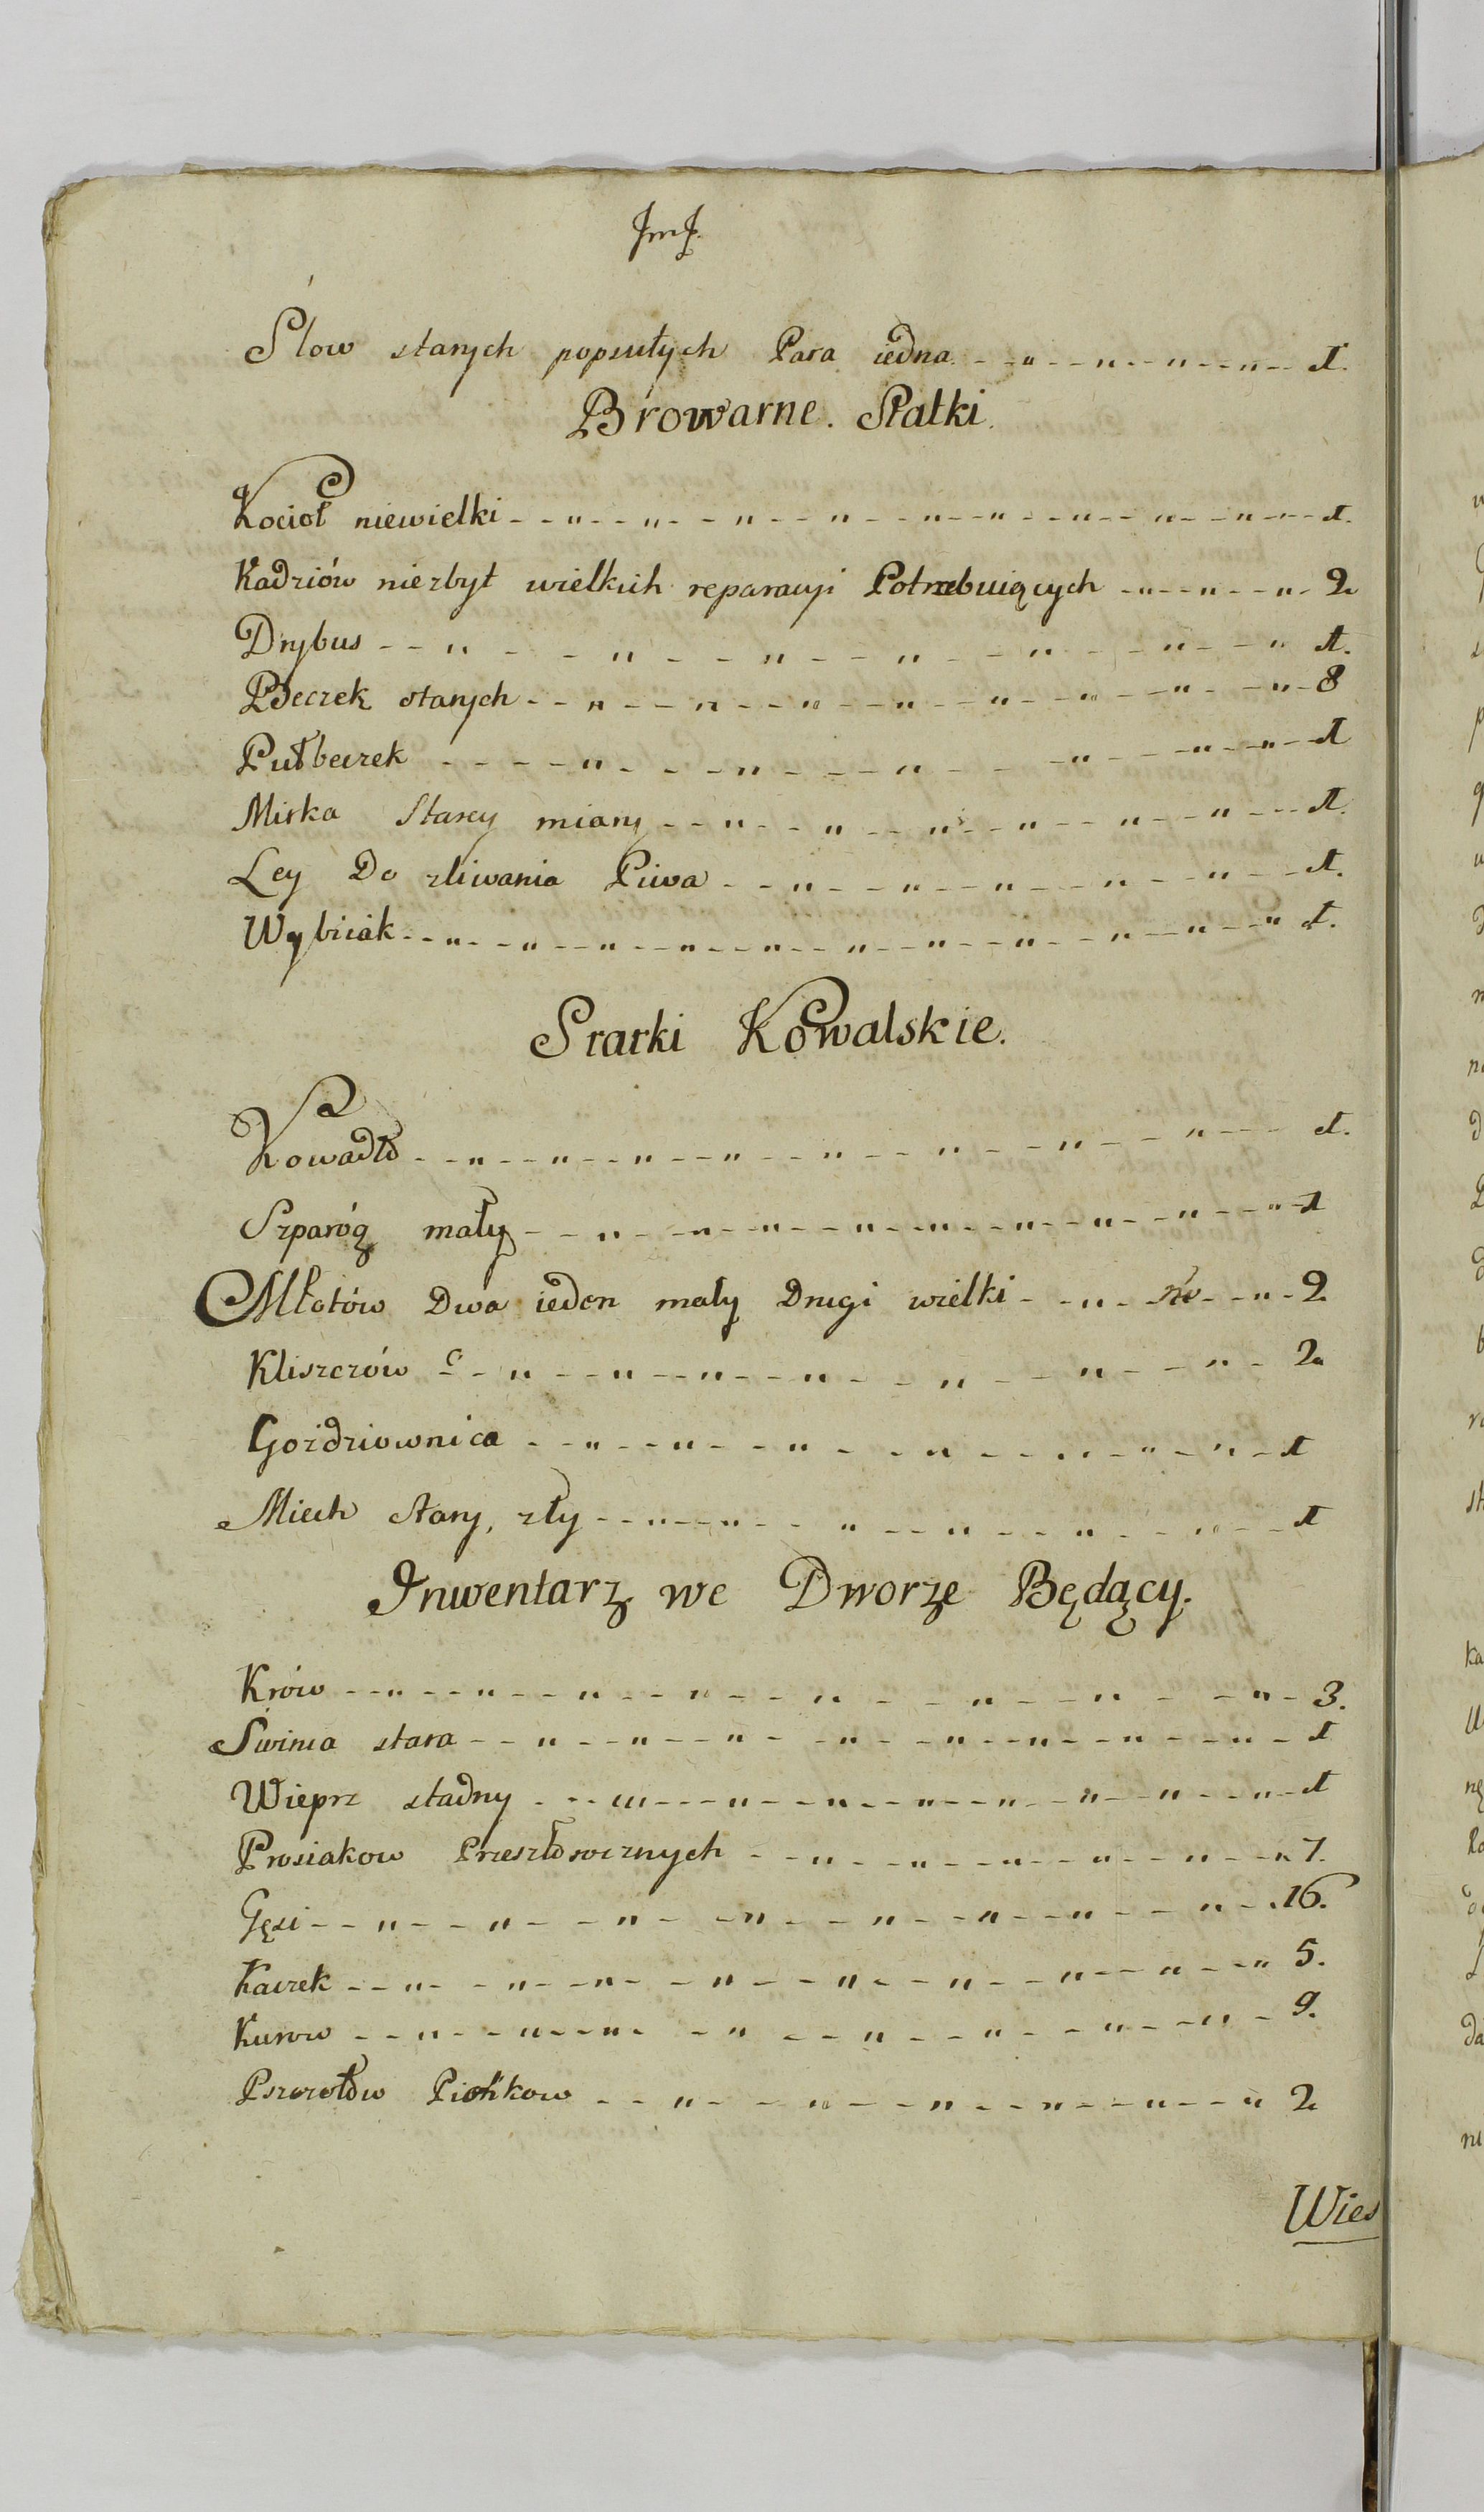 Slow starych popsutych Para iedna 1.
Browarne. Statki.
Kocioł niewielki 1.
Kadziów niezbyt wielkich reparacyi Potrzebuiących 2
Drybus 1.
Beczek starych 8
Pułbeczek 1
Mirka Starey miary 1.
Ley Do zliwania Piwa 1.
Wybiiak 1.
Statki Kowalskie.
Kowadło 1.
Szparóg mały 1
Młotów Dwa ieden mały Drugi wielki 2
Kliszczów 2
Goździownica 1
Miech stary, zły 1
Inwentarz we Dworze Będący.
Krów 3.
Swinia stara 1
Wieprz stadny 1
Prosiakow Przeszłorocznych 7.
Gęsi 16.
Kaczek 5.
Kurow 9.
Pszczołów Pińkow 2
Wies